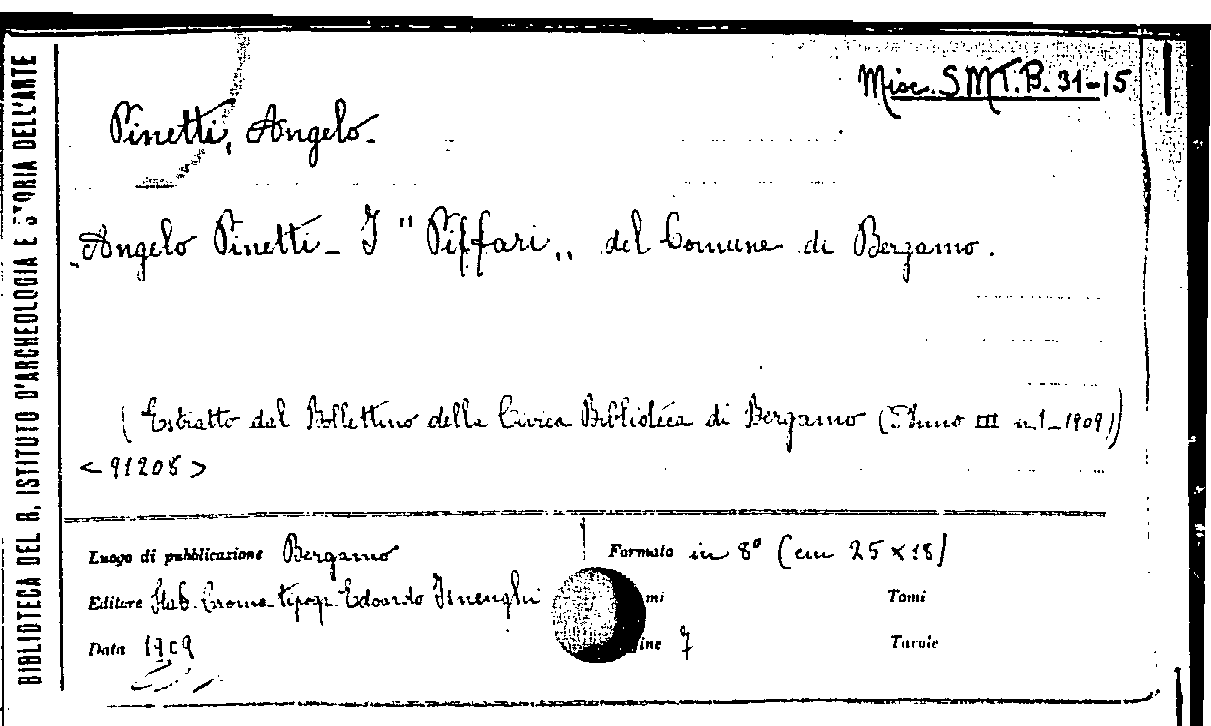 BIBLIOTECA DEL R. ISTITUTO D'ARCHEOLOGIA E STORIA DELL'ARTE
Misc. SMT.B. 31-15
Pinetti, Angelo.
Angelo Pinetti - I "Piffari„ del Comune di Bergamo.
(Estratto dal Bollettino della Civica Biblioteca di Bergamo (Anno III n.1-1909))
<91205>
Luogo di pubblicazione Bergamo
Formato in 8° (cm 25×18)
Editore Stab. Cromo-tipogr. Edoardo Isnenghi
mi
Tomi
Data 1909
ine 7
Tavole